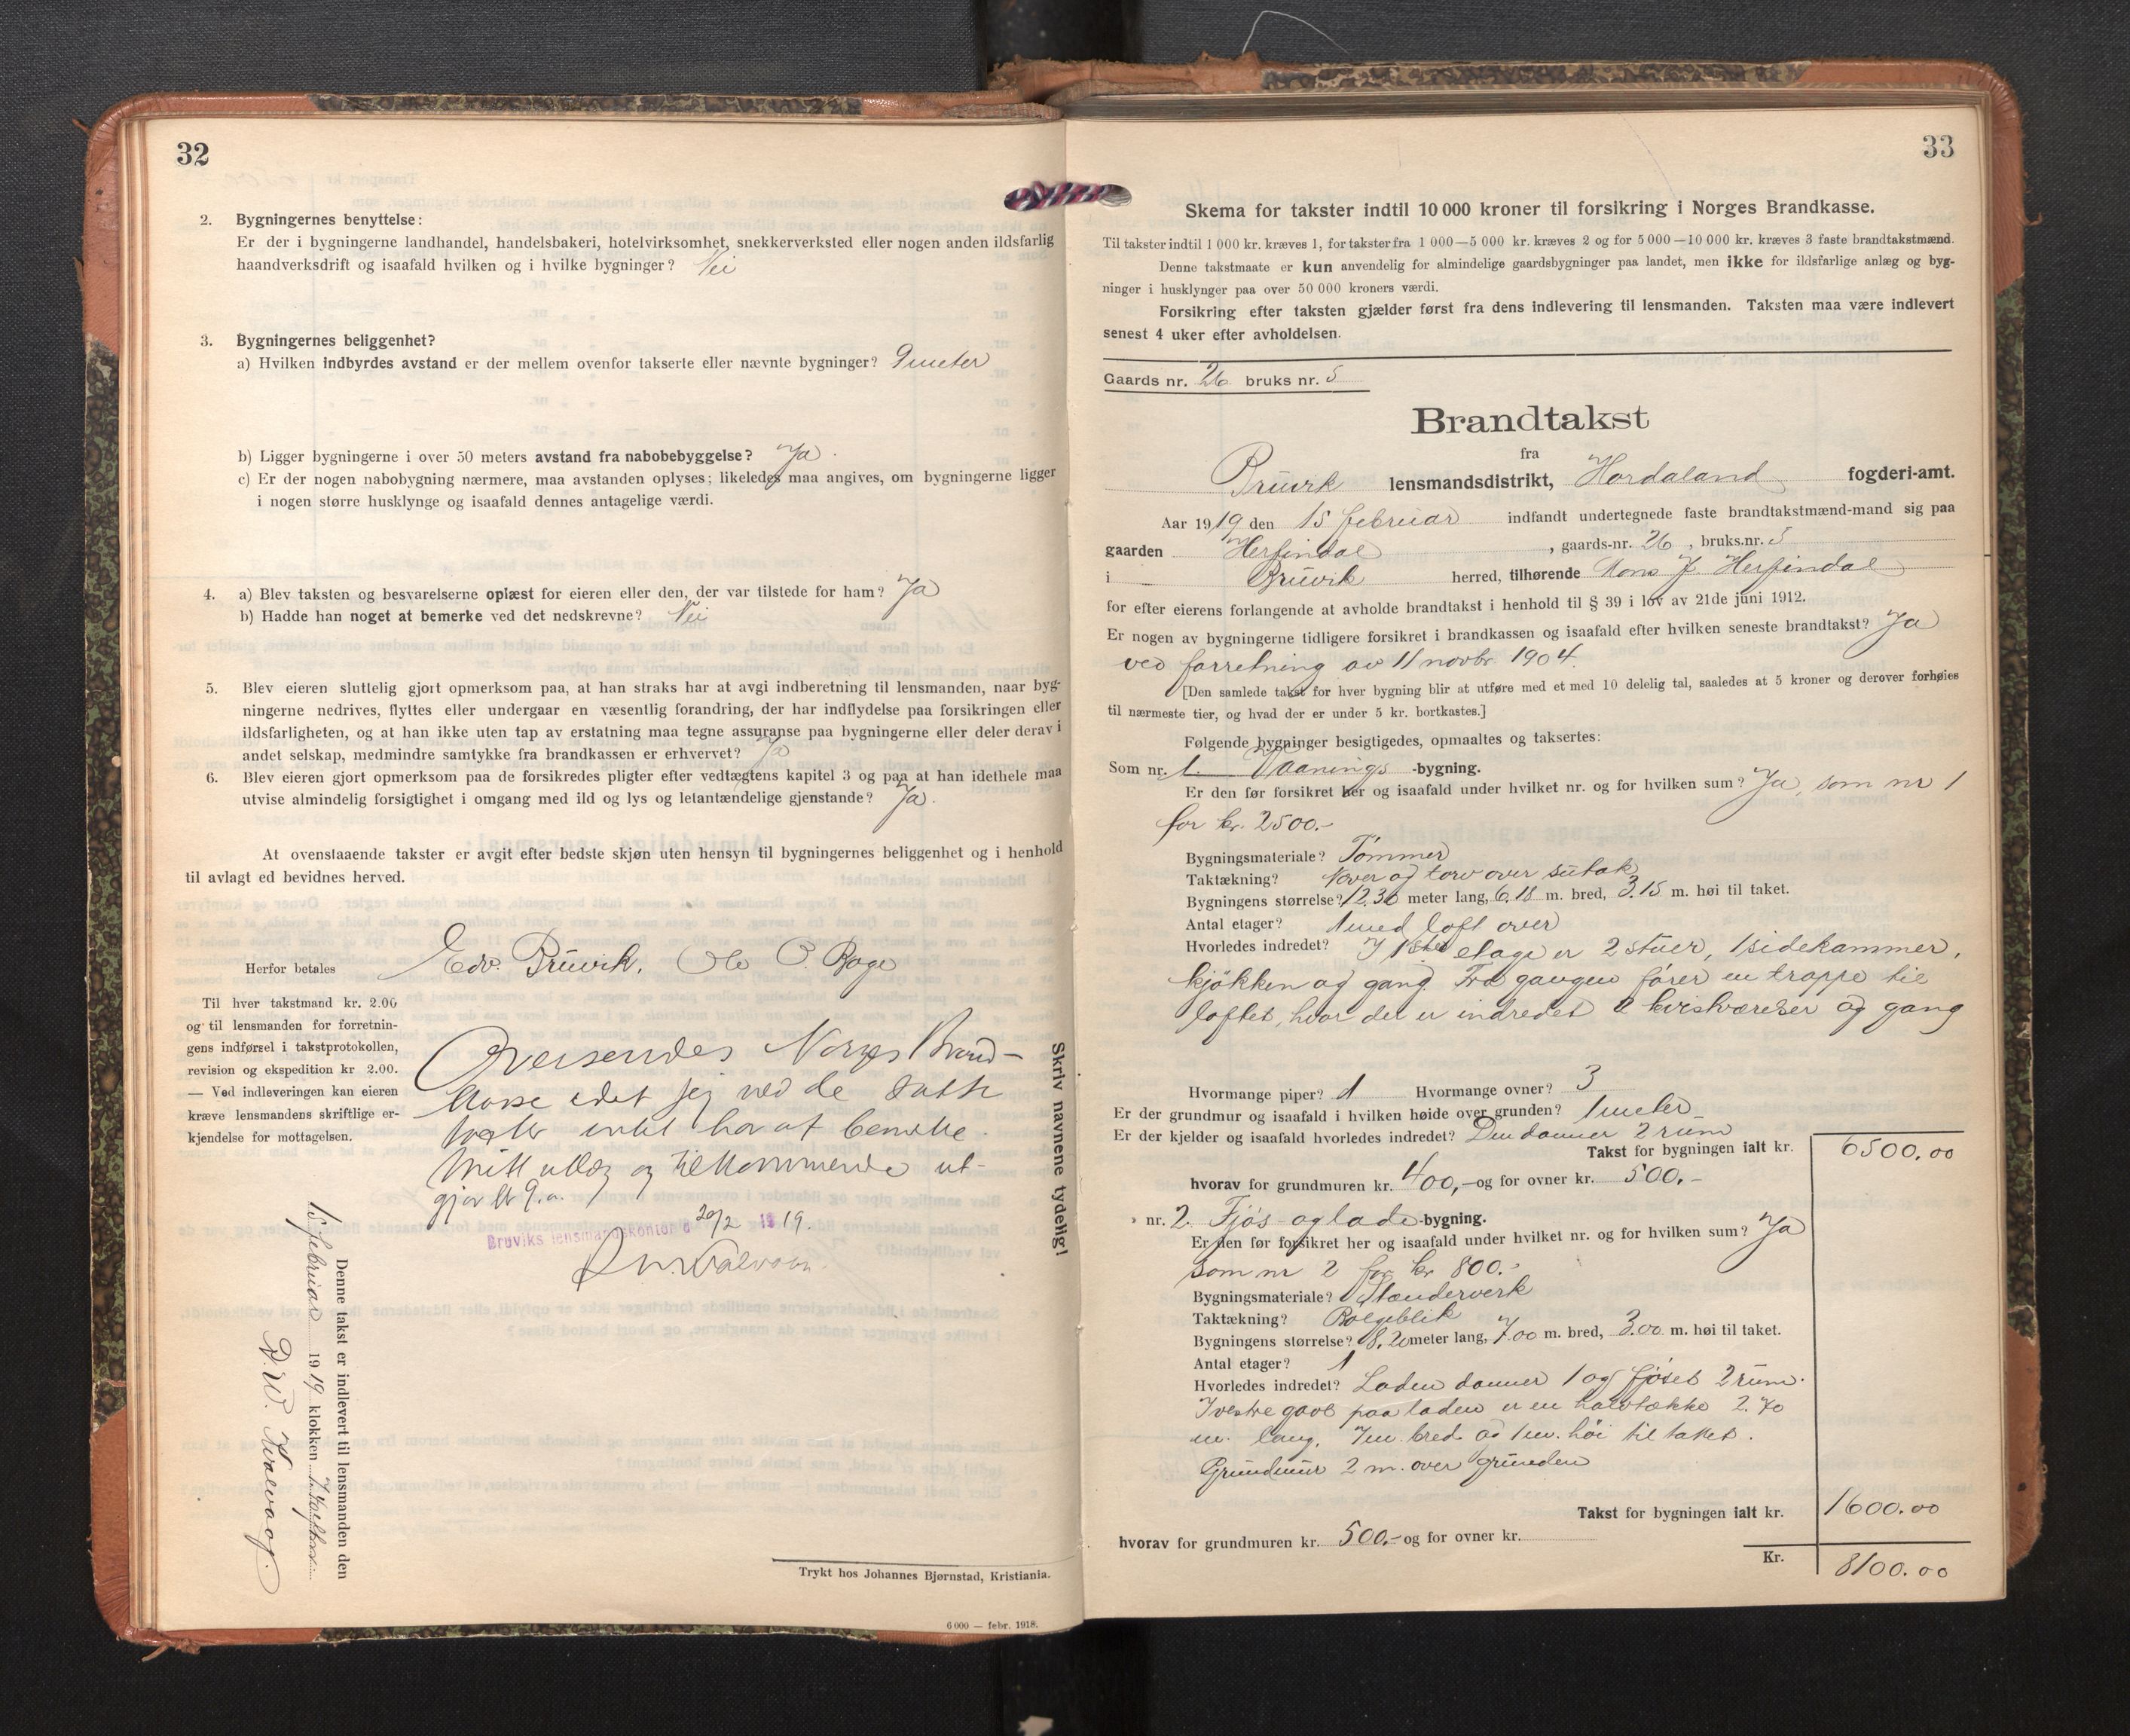 32
2. Bygningernes benyttelse:
Er der i bygningerne landhandel, handelsbakeri, hotelvirksomhet, snekkerverksted eller nogen anden ildsfarlig
haandverksdrift og isaafald hvilken og i hvilke bygninger? Nei
3. Bygningernes beliggenhet?
a) Hvilken indbyrdes avstand er der mellem ovenfor takserte eller nævnte bygninger? 9 meter
b) Ligger bygningerne i over 50 meters avstand fra nabobebyggelse? Ja.
c) Er der nogen nabobygning nærmere, maa avstanden oplyses; likeledes maa angives, om bygningerne ligger
i nogen større husklynge og isaafald dennes antagelige værdi.
4. a) Blev taksten og besvarelserne oplæst for eieren eller den, der var tilstede for ham? Ja
b) Hadde han noget at bemerke ved det nedskrevne? Nei
5. Blev eieren sluttelig gjort opmerksom paa, at han straks har at avgi indberetning til lensmanden, naar byg-
ningerne nedrives, flyttes eller undergaar en væsentlig forandring, der har indflydelse paa forsikringen eller
ildsfarligheten, og at han ikke uten tap av erstatning maa tegne assuranse paa bygningerne eller deler derav i
andet selskap, medmindre samtykke fra brandkassen er erhvervet? Ja
6. Blev eieren gjort opmerksom paa de forsikredes pligter efter vedtægtens kapitel 3 og paa at han idethele maa
utvise almindelig forsigtighet i omgang med ild og lys og letantændelige gjenstande? Ja.
At ovenstaaende takster er avgit efter bedste skjøn uten hensyn til bygningernes beliggenhet og i henhold
til avlagt ed bevidnes herved.
Edv. Bruvik. Ole O. Boge
Herfor betales
Til hver takstmand kr. 2.00
og til lensmanden for forretnin-
gens indførsel i takstprotokollen,
revision og ekspedition kr 2.00.
— Ved indleveringen kan eieren
kræve lensmandens skriftlige er-
kjendelse for mottagelsen.
Oversendes Norges Brand-
kasse idet jeg ved de satte
takster intet har at bemerke.
Mitt utlæg og tilkommende ut-
gjør kr 9.
Bruviks lensmandskontor d 20/2 1919.
Skriv navnene tydelig!
Denne takst er indlevert til lensmanden den
15 februar 1919 klokken
Trykt hos Johannes Bjørnstad, Kristiania.
6 000 — febr. 1918.
33
Skema for takster indtil 10 000 kroner til forsikring i Norges Brandkasse.
Til takster indtil 1 000 kr. kræves 1, for takster fra 1 000—5 000 kr. kræves 2 og for 5 000—10 000 kr. kræves 3 faste brandtakstmænd.
Denne takstmaate er kun anvendelig for almindelige gaardsbygninger paa landet, men ikke for ildsfarlige anlæg og byg-
ninger i husklynger paa over 50 000 kroners værdi.
Forsikring efter taksten gjælder først fra dens indlevering til lensmanden. Taksten maa være indlevert
senest 4 uker efter avholdelsen.
Gaards nr. 26 bruks nr. 5
Brandtakst
fra
Bruvik lensmandsdistrikt, Hordaland fogderi-amt.
Aar 1919 den 15 februar indfandt undertegnede faste brandtakstmænd-mand sig paa
gaarden Herfindal, gaards-nr. 26, bruks.nr. 5
i Bruvik herred, tilhørende Mons J. Herfindal
for efter eierens forlangende at avholde brandtakst i henhold til § 39 i lov av 21de juni 1912.
Er nogen av bygningerne tidligere forsikret i brandkassen og isaafald efter hvilken seneste brandtakst? Ja
ved forretning av 11 novbr. 1904.
[Den samlede takst for hver bygning blir at utføre med et med 10 delelig tal, saaledes at 5 kroner og derover forhøies
til nærmeste tier, og hvad der er under 5 kr. bortkastes.]
Følgende bygninger besigtigedes, opmaaltes og taksertes:
Som nr. 1. Vaanings -bygning.
Er den før forsikret her og isaafald under hvilket nr. og for hvilken sum? Ja, som nr 1
for kr. 2500.-
Bygningsmateriale? Tømmer
Taktækning? Never og torv over sutak
Bygningens størrelse? 12.36 meter lang, 6.18 m. bred, 3.15 m. høi til taket.
Antal etager? 1 med loft over
Hvorledes indredet? I 1ste etage er 2 stuer, 1 sidekammer,
kjøkken og gang. Fra gangen fører en trappe til
loftet, hvor der er indredet 2 kvistværelser og gang
Hvormange piper? 1 Hvormange ovner? 3
Er der grundmur og isaafald i hvilken høide over grunden? 1 meter
Er der kjelder og isaafald hvorledes indredet? Den danner 2 rum
Takst for bygningen ialt kr. 6500.00
hvorav for grundmuren kr. 400,- og for ovner kr. 500.-
nr. 2. Fjøs og lade -bygning.
Er den før forsikret her og isaafald under hvilket nr. og for hvilken sum? Ja
som nr 2 for kr 800.-
Bygningsmateriale? Stænderverk
Taktækning? Bølgeblik
Bygningens størrelse? 8.20 meter lang, 7.00 m. bred, 3.00 m. høi til taket.
Antal etager? 1
Hvorledes indredet? Laden danner 1 og fjøset 2 rum.
I vestre gavl paa laden er en halvtække 2.70
m. lang, 7 m. bred og 1 m. høi til taket.
Grundmur 2 m. over grunden
Takst for bygningen ialt kr. 1600.00
hvorav for grundmuren kr. 500.- og for ovner kr.
Kr. 8100.00